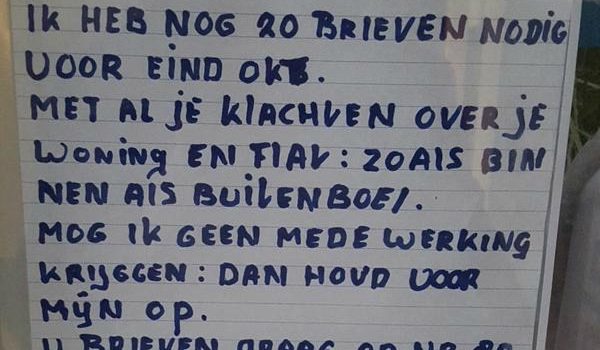 IK HEB NOG 20 BRIEVEN NODIG
VOOR EIND OKT.
MET AL jE KLACHTEN OVER jE
WONING EN FLAT: ZOALS BIN
NEN ALS BUITENBOEL.
MOG IK GEEN MEDE WERKING
KRIJGGEN: DAN HOUD VOOR
MIJN OP.
U BRIEVEN GRAAG OP NR 80